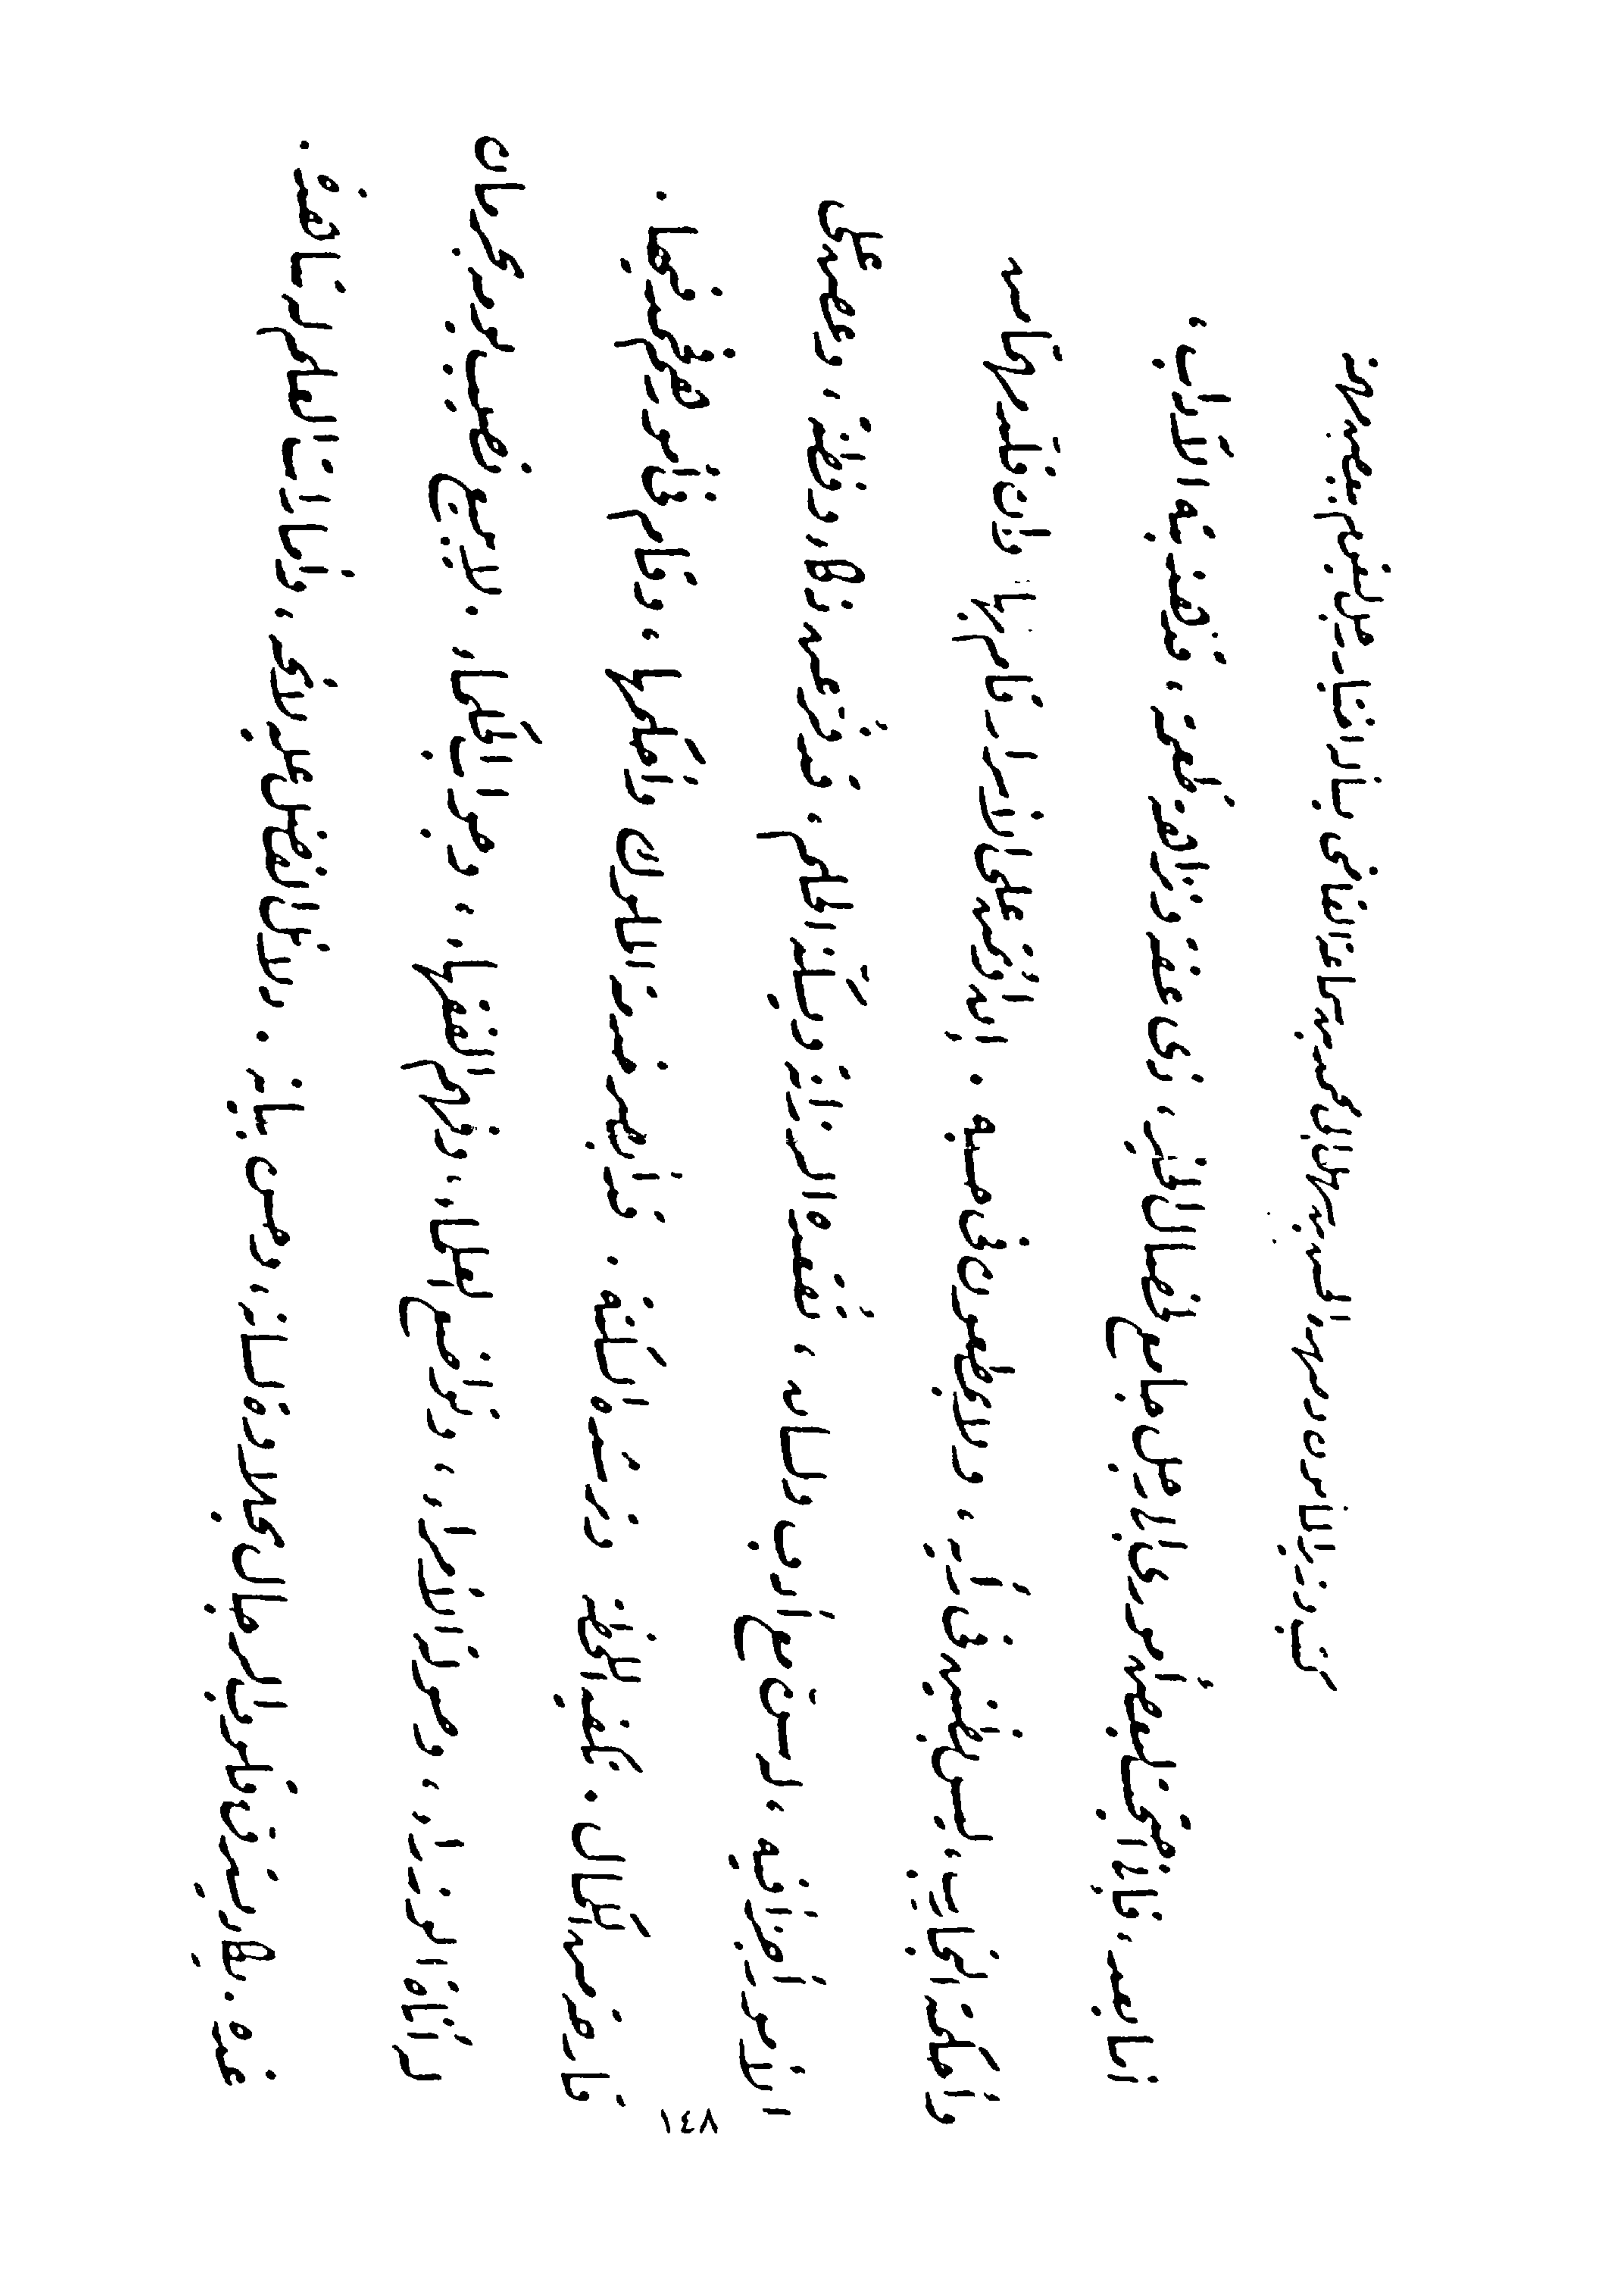 كتب وزير المأمون وصهره الحسن بن سهل إلى محمد بن سماعة القاضى بشأن اختيار رجل ليقوم ببعض مهامه
أما بعد، فإنى احتجت لبعض أمورى إلى رجل جامع لخصال الخير، ذى عفة ونزاهة طعمة، قد هذبته الآداب،
وأحكمته التجارب، ليس بظنين فى رأيه، ولا بمطعون فى حسبه. إن اؤتمن على الأسرار قام بها، وإن قلد مهما من
الأمور أجزأ فيه، له سن مع أدب ولسان، تقعده الرزانة ويسكنه الحلم، قد فر عن ذكاء وفطنة، وعض على
قارحة من الكمال. تكفيه اللحظة وترشده السكتة. قد أبصر خدمة الملوك وأحكمها، وقام فى أمورهم فحمد فيها.
له أناة الوزراء، وصولة الأمراء، وتواضع العلماء، وفهم الفقهاء، وجواب الحكماء. لا يبيع نصيب يومه بحرمان
غده. يكاد يسترق قلوب الرجال بحلاوة لسانه، وحسن بيانه. دلائل الفضل عليه لائحة، وأمارات العلم له شاهدة.
٧٤١